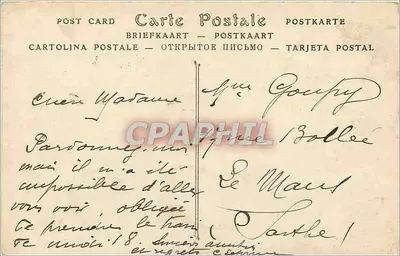 POST CARD Carte Postale POSTKARTE
BRIEFKAART — POSTKAART
CARTOLINA POSTALE — ОТКРЫТОЕ ПИСЬМО — TARJETA POSTAL
Chère Madame
Pardonnez-moi
mais il m'a été
impossible d'aller
vous voir, obligée
de prendre le train
de midi 18.
et regrets
Mme Goupy
rue Bollée
Le Mans
(Sarthe)
CPAPHIL